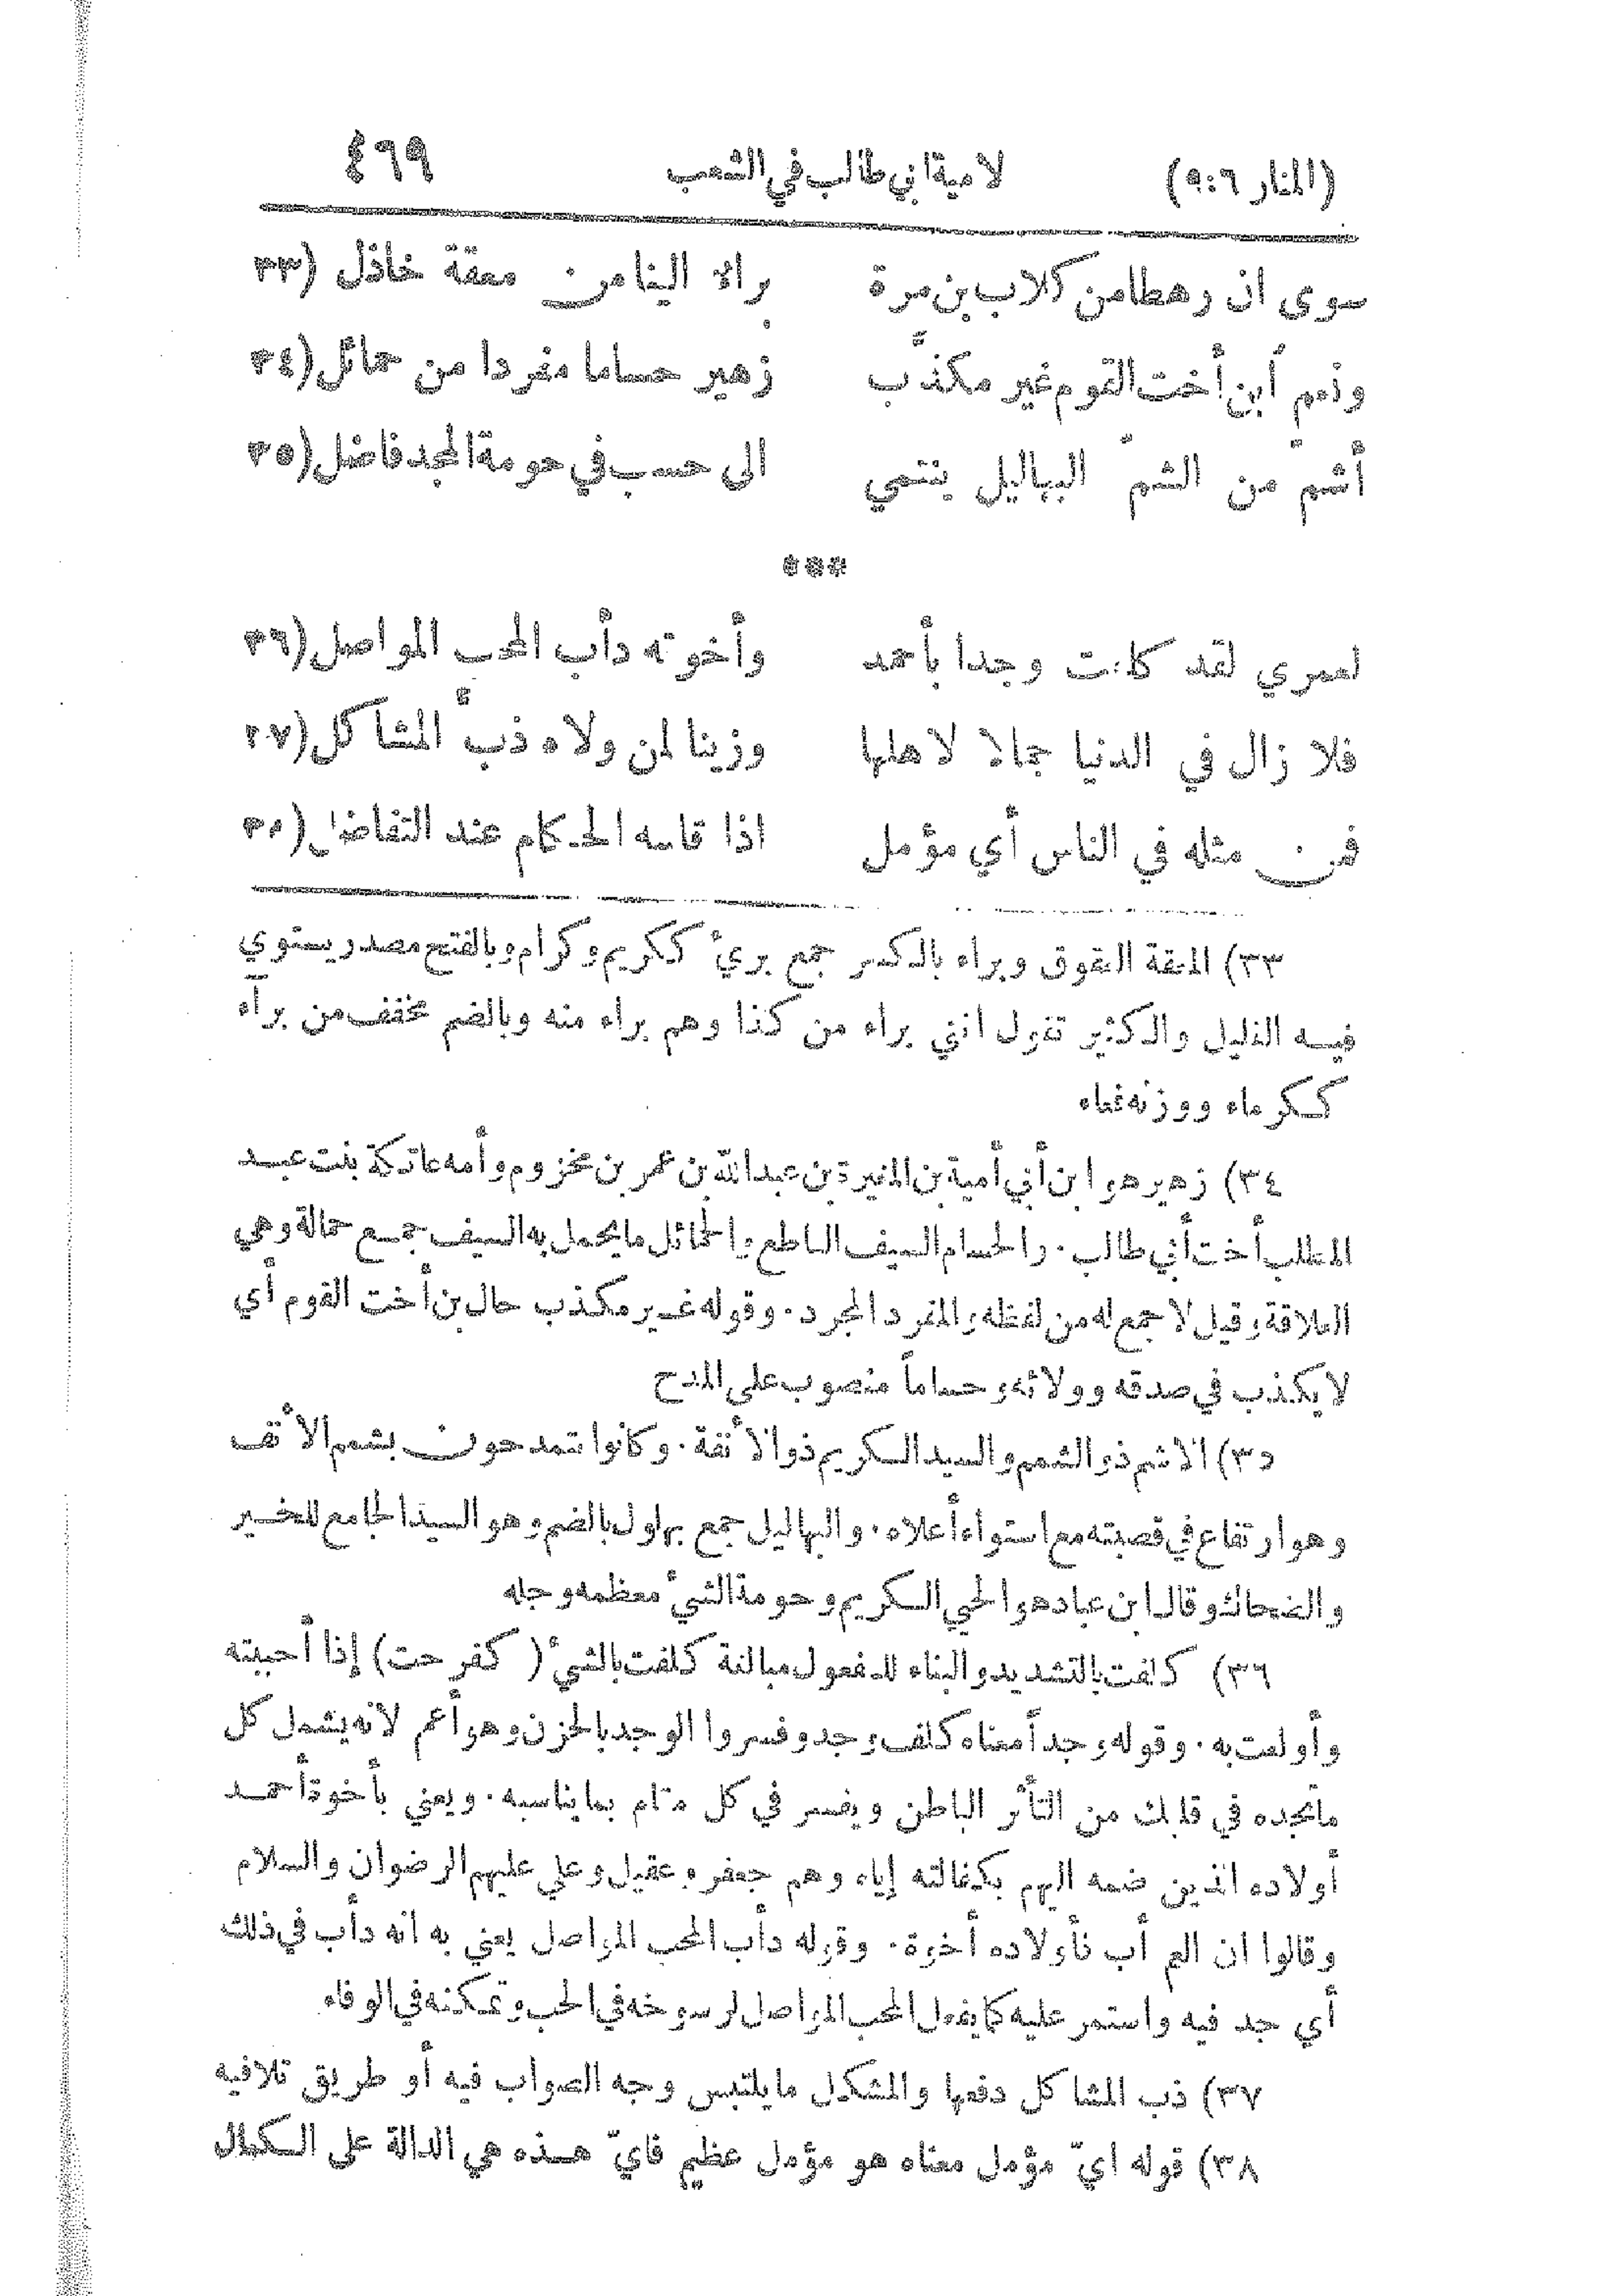 (المنار ٩:٦) لامية ابي طالب في الشعب ٤٦٩
سوى ان رهطا من كلاب بن مرة براء الينا من معقة خاذل (٣٣
ونعم ابن أخت القوم غير مكذّب زهير حساما مفردا من حمائل (٣٤
أشمّ من الشمّ البهاليل ينتمي الى حسب في حومة المجد فاضل (٣٥
***
لعمري لقد كلفت وجدا بأحمد وأخوته دأب المحب المواصل (٣٦
فلا زال في الدنيا جمالا لاهلها وزينا لمن ولاه ذبّ المشاكل (٣٧
فمن مثله في الناس أي مؤمل اذا قاسه الحكام عند التفاضل (٣٨
٣٣) المعقة العقوق وبراء بالكسر جمع بريء ككريم وكرام وبالفتح مصدر يستوي
فيه القليل والكثير تقول انني براء من كذا وهم براء منه وبالضم مخفف من برآء
ككرماء ووزنه فعاء
٣٤) زهير هو ابن أبي أمية بن المغيرة بن عبد الله بن عمر بن مخزوم وأمه عاتكة بنت عبد
المطلب أخت أبي طالب . والحسام السيف القاطع والحمائل ما يحمل به السيف جمع حمالة وهي
العلاقة وقيل لا جمع له من لفظه والمفرد المجرد . وقوله غير مكذب حال بن أخت القوم أي
لا يكذب في صدقه وولائه وحساماً منصوب على المدح
٣٥) الاشم ذو الشمم والسيد الكريم ذو الأنفة . وكانوا تمدحون بشمم الأنف
وهو ارتفاع في قصبته مع استواء أعلاه . والبهاليل جمع بهلول بالضم وهو السيد الجامع للخير
والضحاك وقال ابن عباد هو الحيي الكريم وحومة الشيء معظمه وجله
٣٦) كلفت بالتشديد والبناء للمفعول مبالغة كلفت بالشيء (كفرحت) إذا أحببته
وأولعت به . وقوله وجداً معناه كلف وجد وفسروا الوجد بالحزن وهو أعم لانه يشمل كل
ما تجده في قلبك من التأثر الباطن ويفسر في كل مقام بما يناسبه . ويعني بأخوة أحمد
أولاده الذين ضمه اليهم بكفالته إياه وهم جعفر وعقيل وعلي عليهم الرضوان والسلام
وقالوا ان العم أب فأولاده أخوة . وقوله دأب المحب المواصل يعني به انه دأب في ذلك
أي جد فيه واستمر عليه كما يفعل المحب المواصل لرسوخه في الحب وتمكنه في الوفاء
٣٧) ذب المشاكل دفعها والمشكل ما يلتبس وجه الصواب فيه أو طريق تلافيه
٣٨) قوله ايّ مؤمل معناه هو مؤمل عظيم فايّ هذه هي الدالة على الكمال